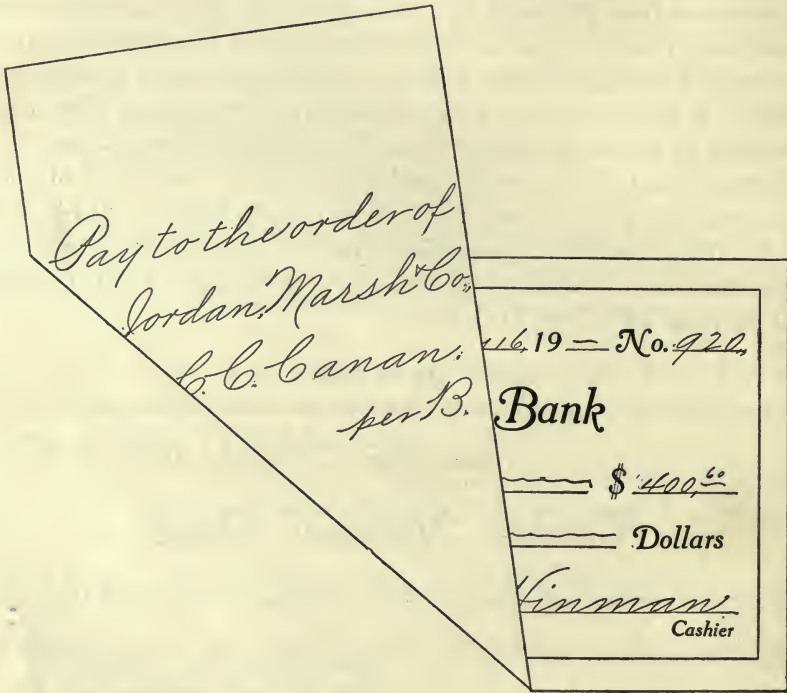 Pay to the order of
Jordan, Marsh & Co.,
C. C. Canan.
per B.
16, 19— No. 920,
Bank
$ 400,60
Dollars
Hinman
Cashier